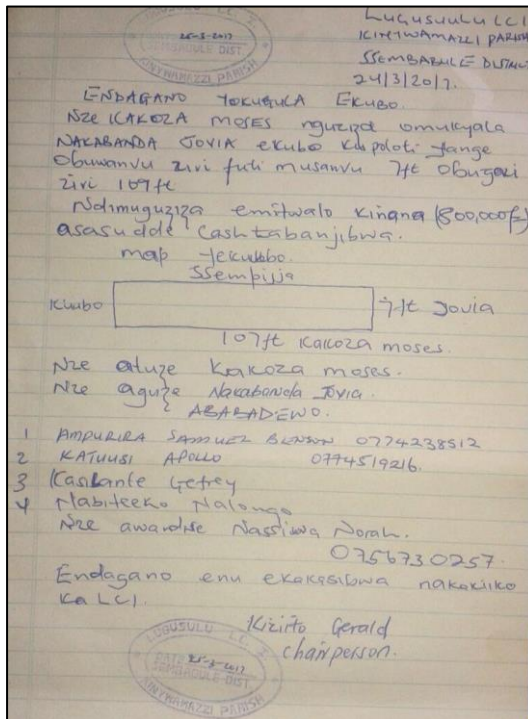 LUGUSUULU LCI
KINYWAMAZZI PARISH
SSEMBABULE DISTRICT
24/3/2017.
25-3-2017
SEMBABULE DIST.
KINYWAMAZZI PARISH
ENDAGANO YOKUGULA EKUBO.
Nze KAKOZA MOSES nguzizza omukyala
NAKABANDA JOVIA ekubo kupoloti yange
Obuwanvu ziri futi musanvu 7ft obugazi
ziri 107ft
Ndimuguzizza emitwalo kinana (800,000/=)
asasudde cash tabanjibwa.
map yekubbo.
Ssempijja
Kkubo 7ft Jovia
107ft Kakoza moses.
Nze atuze Kakoza moses.
Nze aguze Nakabanda Jovia.
ABABADEWO.
1 AMPURIRA SAMUEL BENSON 0774238512
2 KATUUSI APOLLO 0774519216.
3 Kasibante Gefrey
4 Nabiteeko Nalongo
Nze awandise Nassiwa Norah.
0756730257.
Endagano enu ekakasibwa nakakiiko
ka LCI.
Kizito Gerald
chairperson.
LUGUSULU LC. I
DATE 25-3-2017
SEMBABULE DIST.
KINYWAMAZZI PARISH